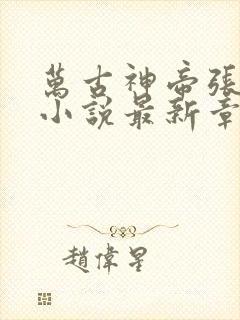 萬古神帝張
小說最新章
趙偉星